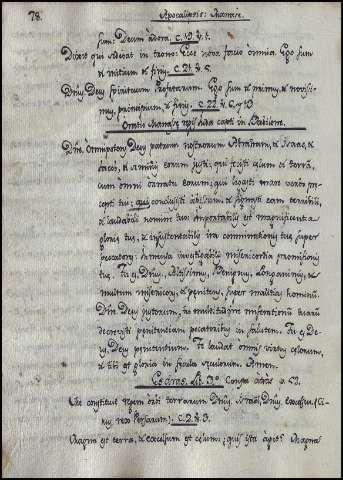 78. Apocalipsis: Manasse.
sum: Deum adora. c. 19. v. 1.
Dixit qui sedebat in trono: Ecce nova facio omnia. Ego sum
et initium et finis. c. 21. v. 5.
Dns Deus spirituum Profetarum Ego sum et primus, et novissi-
mus, principium, et finis. c. 22. v. 6. 
Oratio Manasse regis Juda capti in
Dne Omnipotens Deus patrum nostrorum Abraham, et Isaac, et
Jacob, et semini eorum justi; qui fecisti celum et terram,
cum omni ornatu eorum; qui ligasti mare verbo pre-
cepti tui; qui conclusisti abissum, et signasti eam terribili,
et laudabili nomine tuo: importabilis est magnificentia
glorie tue, et insustentabilis ira comminationis tue super
peccatores. Inmensa investigabilis misericordia promissionis
tue. Tu es, Dnus, Altissimus, Benignus, Longanimis, et
multum misericors, et penitens, super malitias hominum.
Dne Deus justorum, tu multitudine miserationum tuarum
decrevisti penitentiam peccatoribus in salutem. Tu es, De-
us, Deus penitentium. Te laudat omnis virtus celorum,
et tibi est gloria in secula seculorum. Amen.
Esdras. Lib. 3º
Me constituit regem orbi terrarum Dnus Israel, Dnus excelsus (Ci-
rus rex Persarum). c. 2. v. 3.
Magna est terra, et excelsum est celum; quis ista